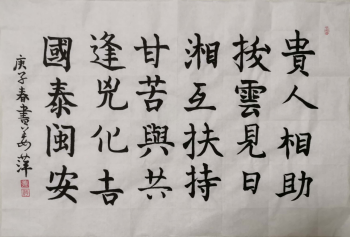 貴人相助
拨雲見日
湘互扶持
甘苦與共
逢兇化吉
國泰闽安
庚子春書姜萍